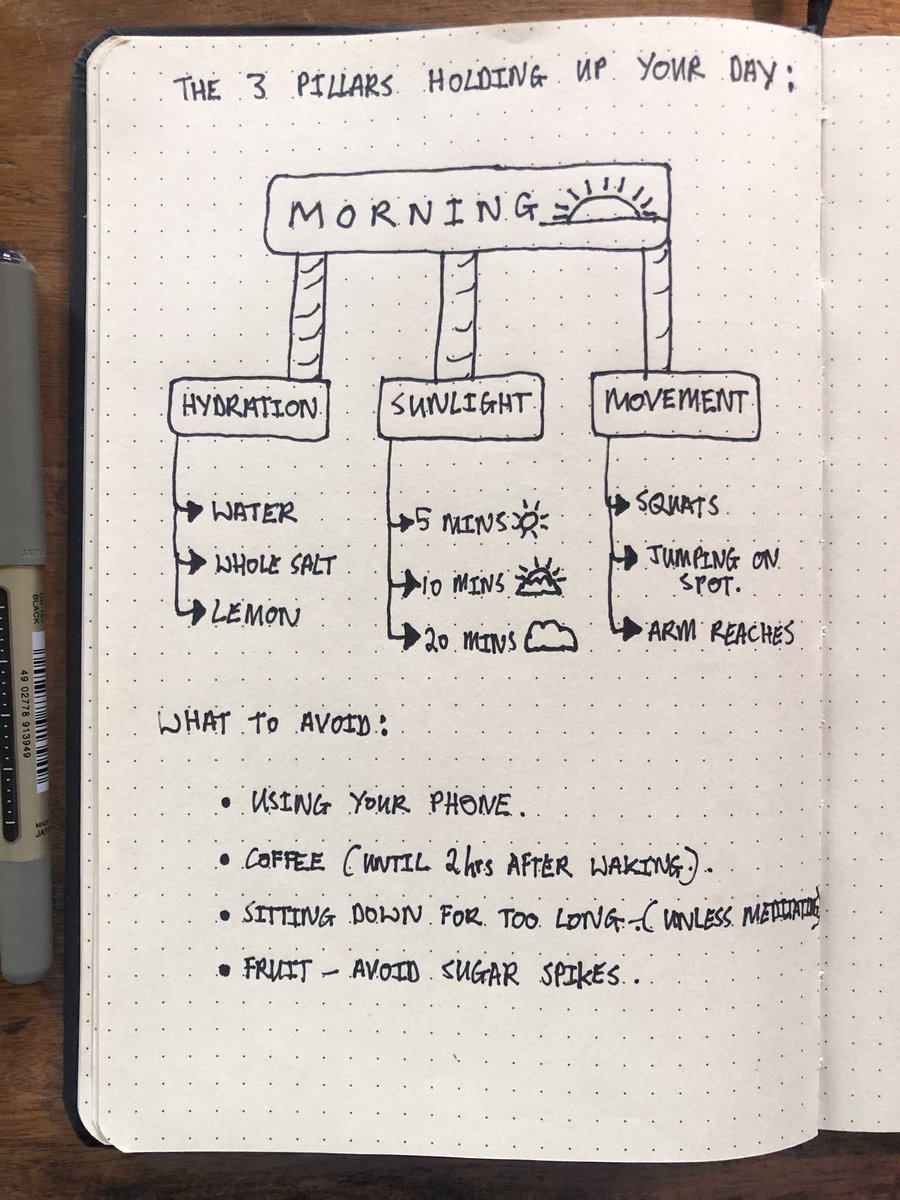 THE 3 PILLARS HOLDING UP YOUR DAY:
MORNING
HYDRATION
SUNLIGHT
MOVEMENT
WATER
WHOLE SALT
LEMON
5 MINS
10 MINS
20 MINS
SQUATS
JUMPING ON
SPOT.
ARM REACHES
WHAT TO AVOID:
• USING YOUR PHONE.
• COFFEE (UNTIL 2hrs AFTER WAKING).
• SITTING DOWN FOR TOO LONG - (UNLESS MEDITATING)
• FRUIT - AVOID SUGAR SPIKES.
BLACK
49 02778 913949